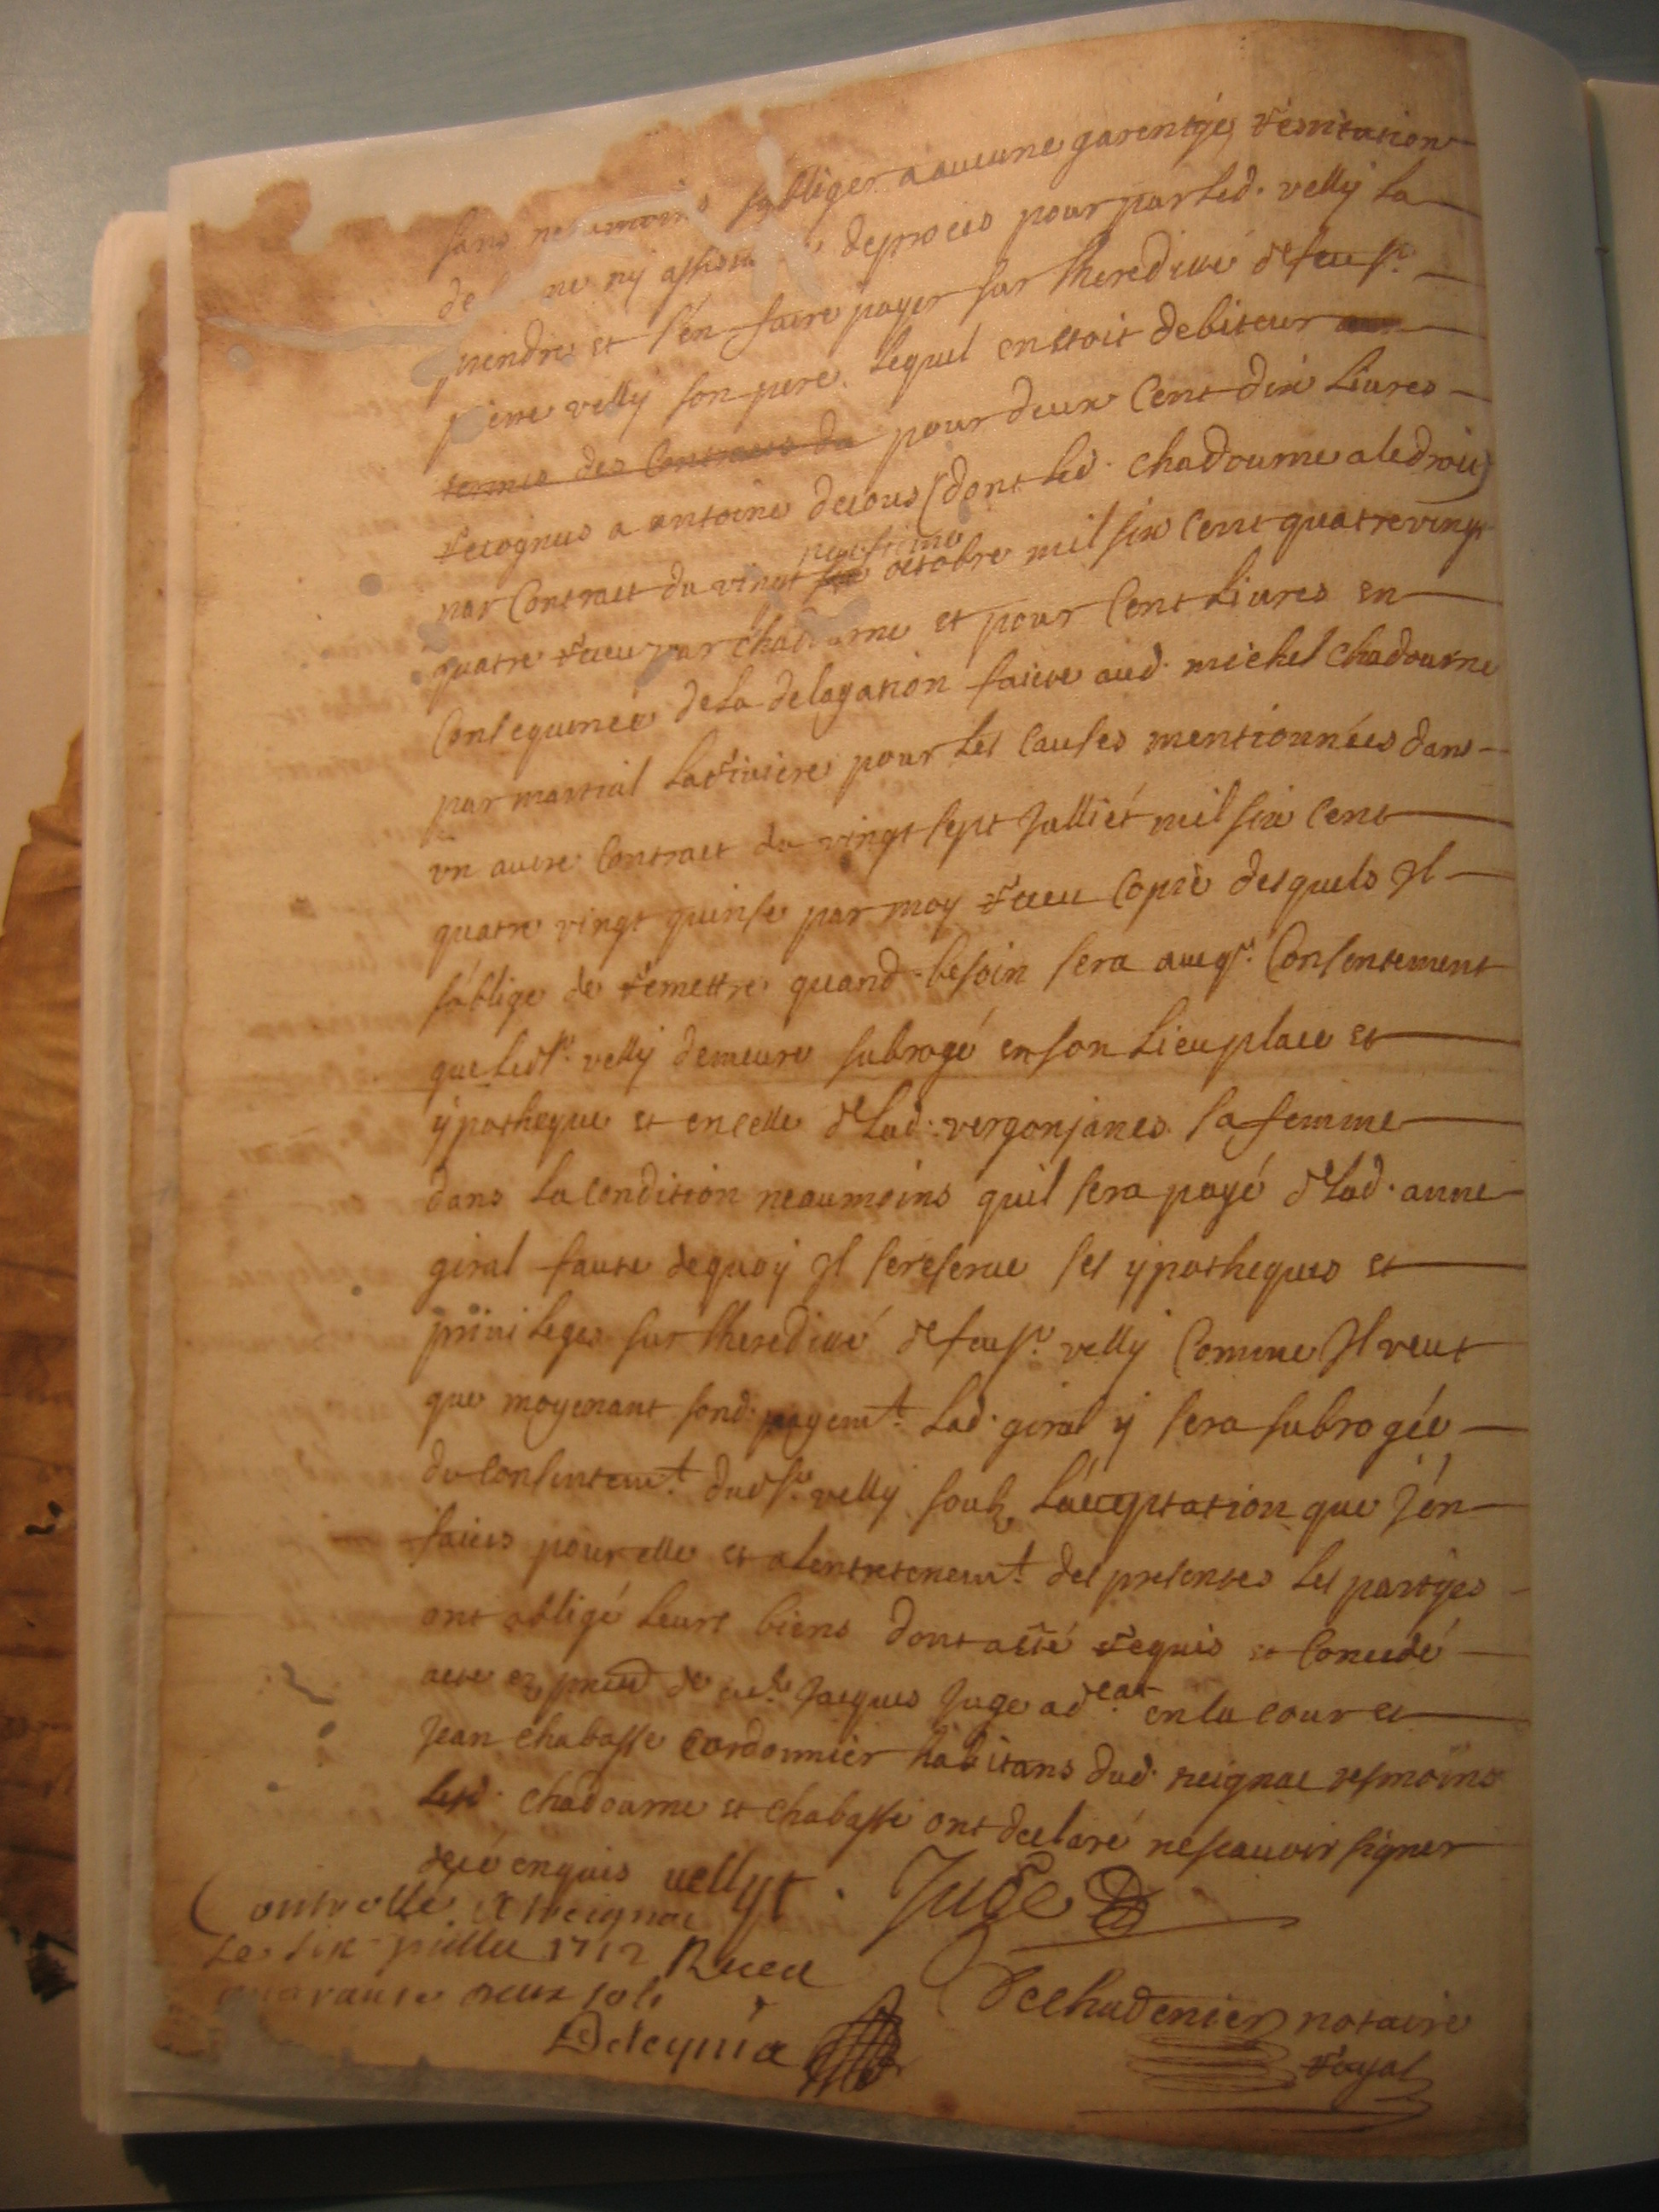 sans neaumoins sobliger a aucune garentye, restitution
de ne ny assistance de proces pour par led. velly la
prendre et s'en faire payer sur lheredité de feu sr.
pierre velly son pere, lequel en estoit debiteur
termes des contracts du pour deux cent dix livres
recognus a antoine decous (dont led. chadourne a le droit)
par contract du vingt neufieme octobre mil six cent quatre vingt
quatre receu par chadourne et pour cent livres en
consequence de la delagation faicte aud. michel chadourne
par martial lariviere pour les causes mentionnées dans
un autre contract du vingt sept julliet mil six cent
quatre vingt quinse par moy receu copie desquels Il
s'oblige de remettre quand besoin sera avec consentement
que led sr. velly demeure subrogé en son lieu place et
ypotheque et en celle de lad. vergonjanes sa femme
dans la condition neaumoins quil sera payé de lad. anne
giral faute de quoy Il se reserve ses ypotheques et
privileges sur lheredité de feu sr. velly comme Il veut
que moyenant sond. payemt. lad. giral y sera subrogée
du consentemt. dud sr. velly soubz l'acceptation que j'en
faicts pour elle et a lentretenemt. des presentes les partyes
ont obligé leurs biens dont a esté requis et concedé
acte ez presence de Jacques Juge adcat. en la cour et
Jean chabasse cordonnier habitans dud. treignac tesmoins
lesd. chadourne et chabasse ont declaré ne scauvoir signer
de ce enquis vellyt. Juge
Controllé A treignac
Le six juillet 1712 Receu
quarante deux sols
Dechadenier notaire
royal